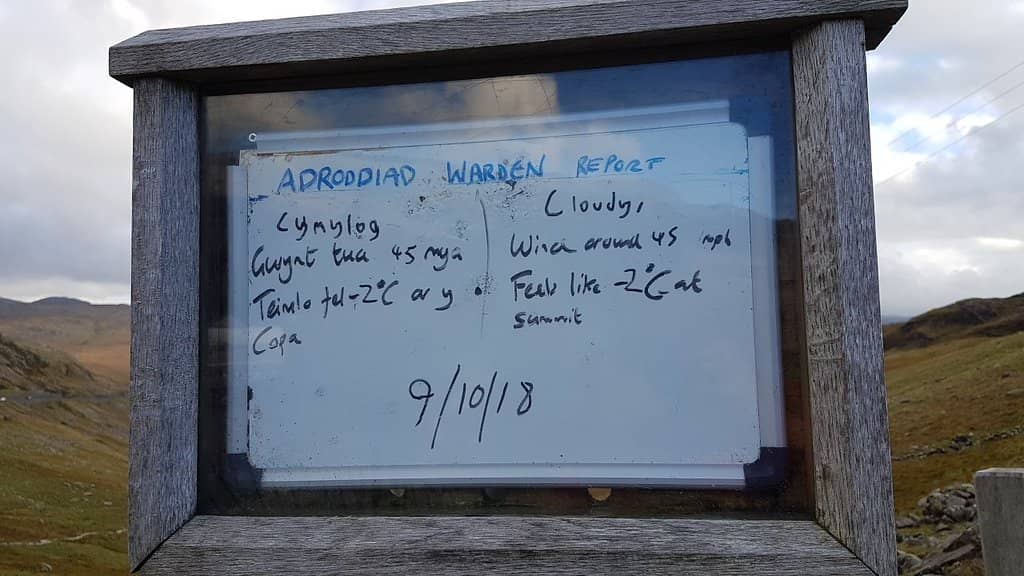 ADRODDIAD WARDEN REPORT
Cymylog
Gwynt tua 45 mya
Teimlo fel -2°C ar y
Copa
Cloudy,
Wind around 45 mph
Feels like -2°C at
summit
9/10/18